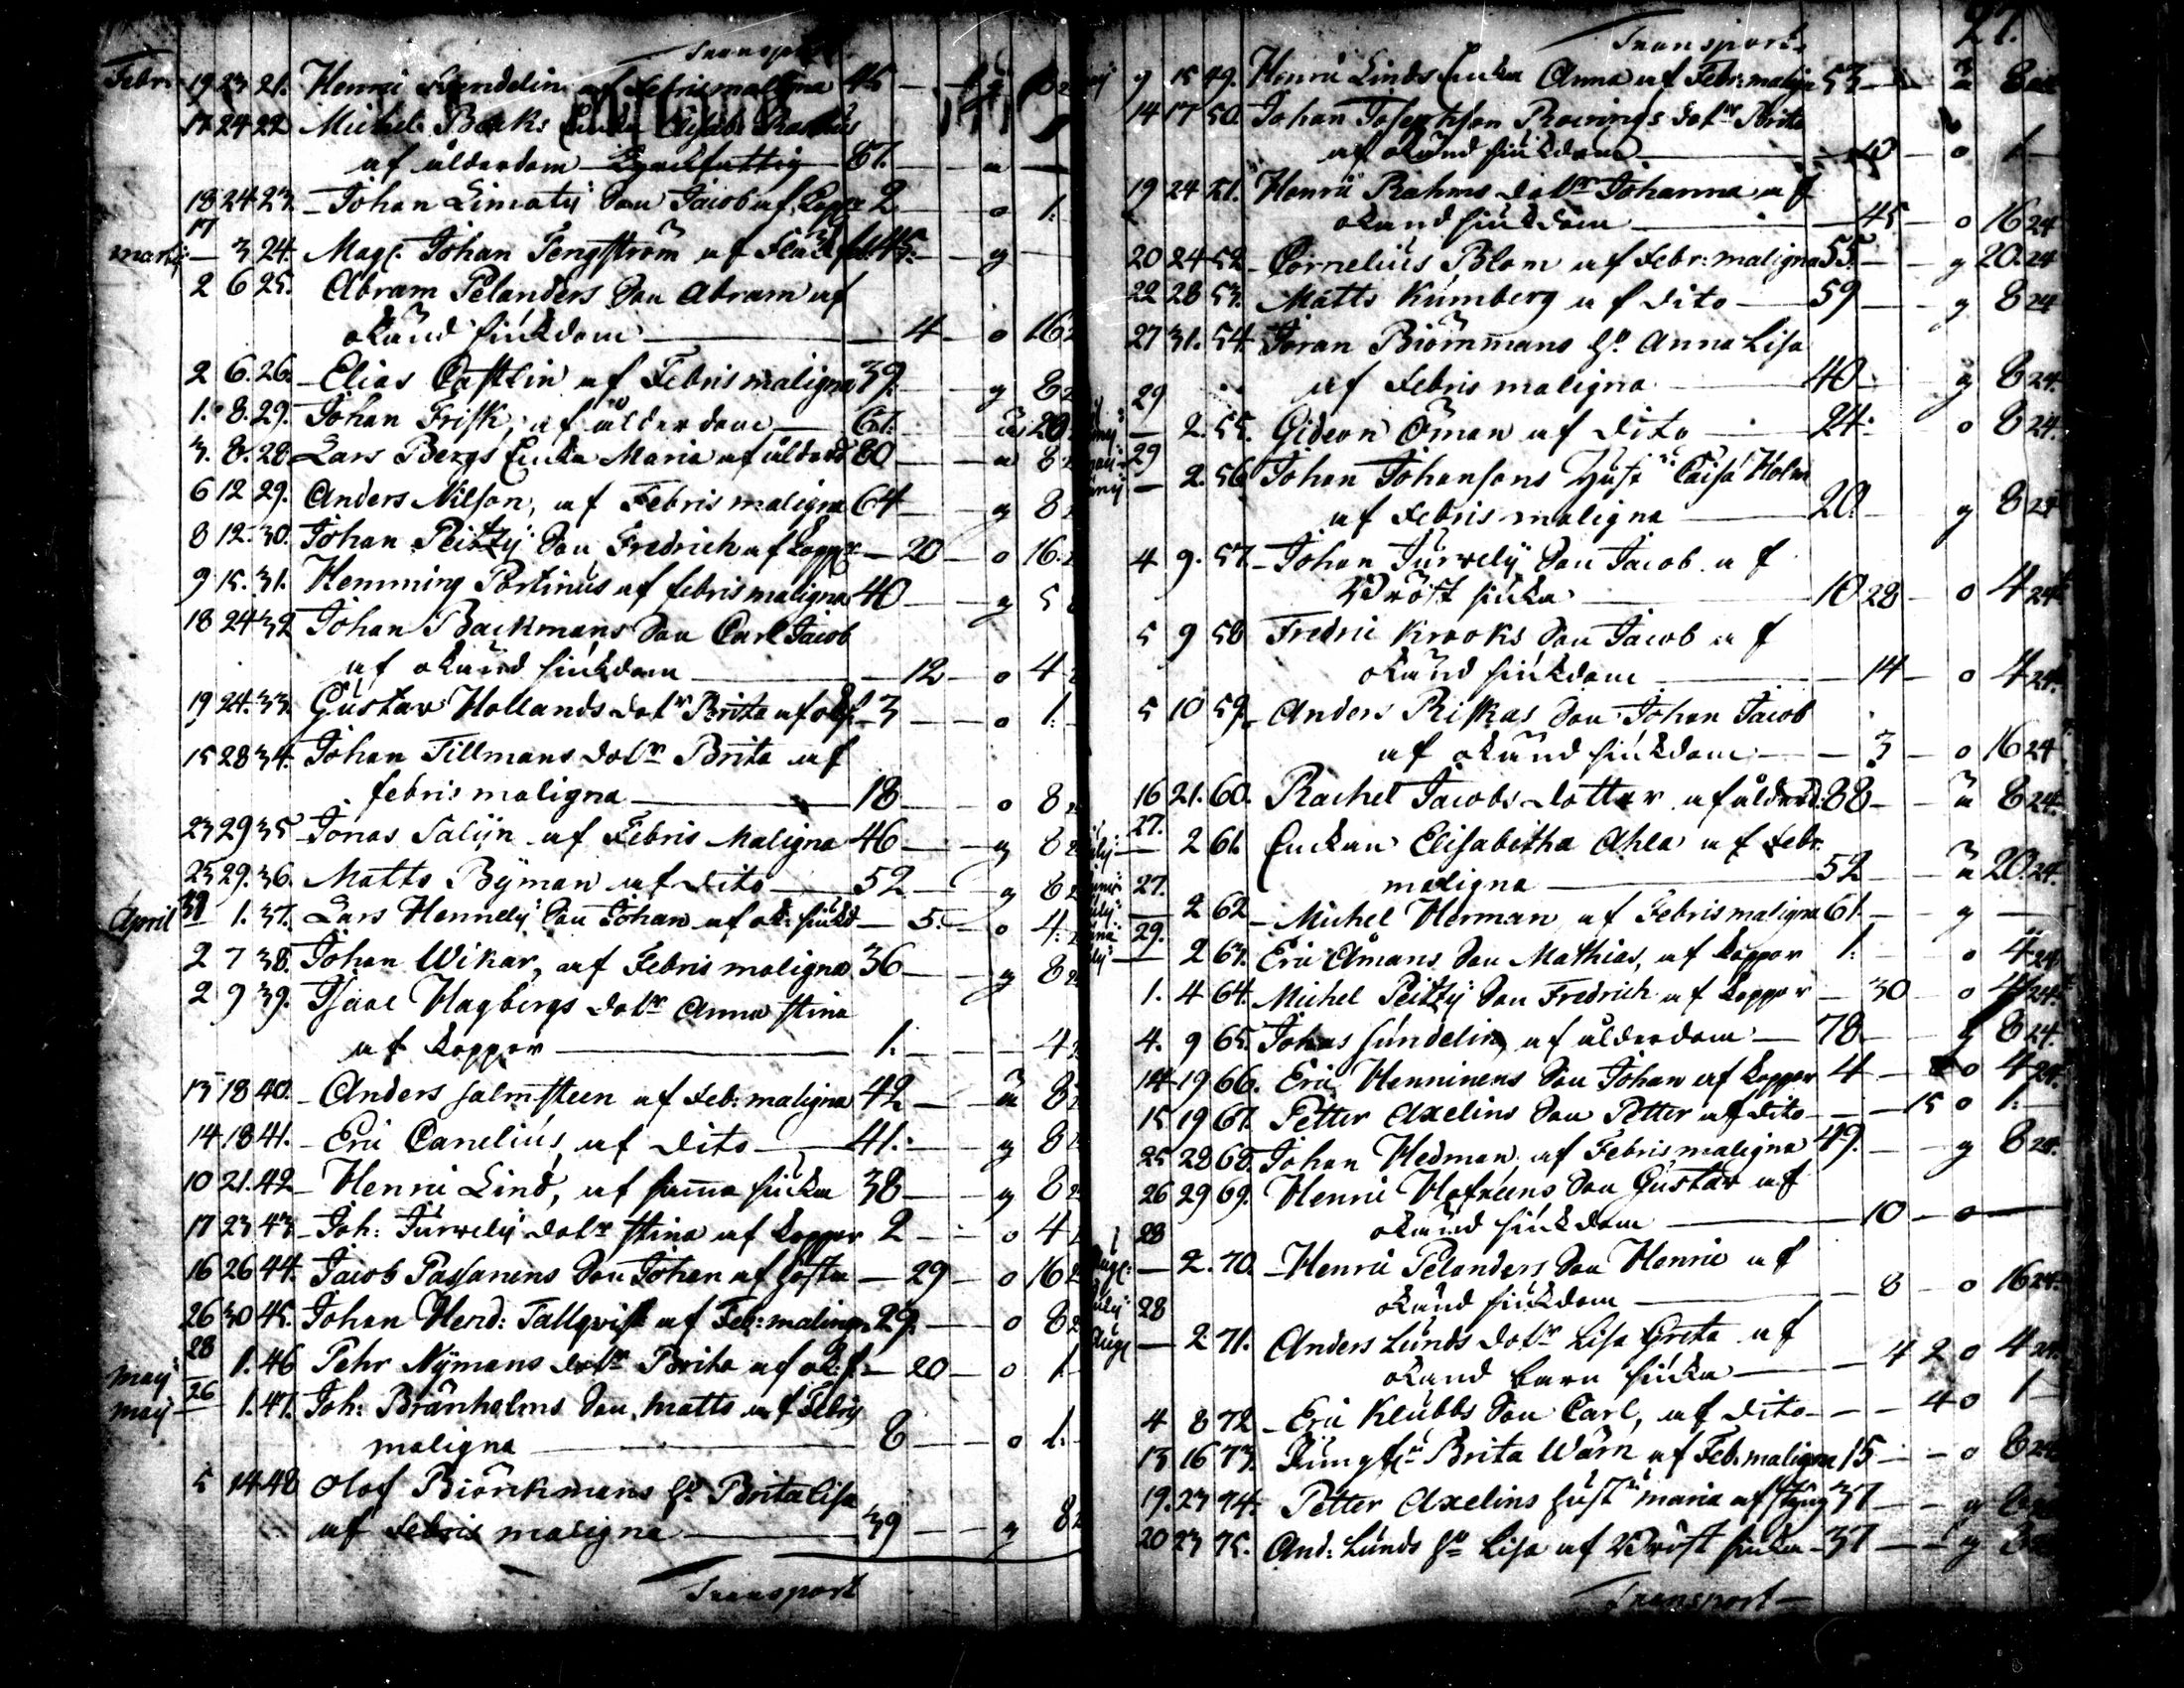 Transport
Febr: 19 23 21. Henric Sundelin af Febris maligna 45 — —
17 24 22 Michel Baks Enka
af ålderdom 87. — — —
18 24 23. Johan Limaty Son Jacob af Kopp: 2 — — o 1:
17
Martij — 3 24. Mag: Johan Tengström af 45. — — g —
2 6 25. Abram Pelanders Son Abram af
okänd siukdom — — 4 — o 16
2 6. 26. Elias Castlin af Febris maligna 39. — — g 8
1. 8. 29. Johan Frisk, af ålderdom — 67. 20
3. 8. 28 Lars Bergs Enka Maria af ålderd 80 — — 8
6 12 29. Anders Nilson, af Febris maligna 64 — — g 8
8 12. 30. Johan Peitzy Son Fredrich af Kopp: — 20 — o 16.
9 15. 31. Hemming Portinus af febris maligna 40 — — g 5
18 24 32 Johan Backmans Son Carl Jacob
af okänd siukdom — — 12 — o 4
19 24. 33. Gustav Hollands dotr Brita af ok: s: 3 — — o 1:
15 28 34. Johan Tillmans dotr Brita af
febris maligna — 18 — — o 8
23 29 35 Jonas Salijn af Febris Maligna 46 — — g 8
25 29. 36. Matts Byman af dito — 52 — — g 8
31
April — 1. 37. Lars Hennely Son Johan af ok: siukd — 5. — o 4:
2 7 38. Johan Wikar, af Febris maligna 36 — — g 8
2 9 39. Isaac Hagbergs dotr Anna Stina
af koppor — 1. — — 4
13 18 40. Anders Salmsteen af Feb: maligna 42 — — 8
14 18 41. Eric Canelius, af dito — 41. — — g 8
10 21. 42 Henric Lind, af samma siuka 38 — — g 8
17 23 43 Joh: Jurvely dotr Stina af koppor 2 — — o 4
16 26 44. Jacob Passanens Son Johan af hosta — 29 — o 16
26 30 45. Johan Hend: Tallqvist af Feb: maligna 29. — — o 8
28
Maij — 1. 46 Pehr Nymans dotr Brita af ok: s: — 20 — o 1
26
Maij — 1. 47. Joh: Bränholms Son Matts af Febris
maligna — 8 — — o 1:
5 14 48 Olof Biörkmans h: Brita Lisa
af Febris maligna — 39 — — g 8
Transport
27.
Transport
9 15 49. Henric Linds Enka Anna af Febr: maligna 53 — — 8
14 17 50. Johan Josephson Roenings dotr Brita
af okänd siukdom — 10 — o 1
19 24 51. Henric Rahms dotr Johanna af
okänd siukdom — 45 — o 16 24
20 24 52 Cornelius Blom af Febr: maligna 55. — — g 20. 24
22 28 53. Matts Kumberg af dito — 59 — g 8 24
27 31. 54. Göran Biömmans h: Anna Lisa
af Febris maligna — 40 — g 8 24.
29
— 2. 55. Gideon Öman af dito — 24: — o 8 24.
29
— 2. 56 Johan Johansons hust: Caisa Holm
af Febris maligna — 20. — g 8 24
4 9. 57. Johan Jurvely Son Jacob af
Bröst siuka — 10 28 — o 4 24
5 9 58 Fredric Krooks Son Jacob af
okänd siukdom — — 14 — o 4 24.
5 10 59. Anders Riskas Son Johan Jacob
af okänd siukdom — — 3 — o 16 24
16 21. 60. Rachel Jacobs dotter af ålderd: 88 — — 8 24.
27.
— 2 61. Enkan Elisabetha Ahla af Febr:
maligna — 52 — 20. 24.
27.
— 2 62 Michel Herman af Febris maligna 61 — — g —
29.
— 2 63. Eric Åmans Son Mathias, af koppor 1: — o 4 24
1. 4 64. Michel Peitzy Son Fredrich af koppor — 30 — o 4 24.
4. 9 65. Johas Sundelin, af ålderdom — 78 — g 8 24.
14 19 66. Eric Henninens Son Johan af koppor 4 — o 4 24.
15 19 67. Petter Axelins Son Petter af dito — — 15 o 1: —
25 28 68. Johan Hedman, af Febris maligna 49. — — g 8 24.
26 29 69. Henric Hofreens Son Gustav af
okänd siukdom — 10 — o —
28
Aug: — 2. 70. Henric Pelanders Son Henric af
okänd siukdom — 8 — o 16 24.
July 28
Aug: — 2 71. Anders Lunds dotr Lisa Greta af
okänd barn siuka — — 4 2 o 4 24.
4 8 72 Eric Klubbs Son Carl, af dito — — 4 o 1 —
13 16 73. Jungfr: Brita Wärn af Feb: maligna 15 — — o 8 24
19. 23 74. Petter Axelins hust: Maria af 37 — — g
20 23 75. And: Lunds h: Lisa af Bröst siuka 37 — — g
Transport —